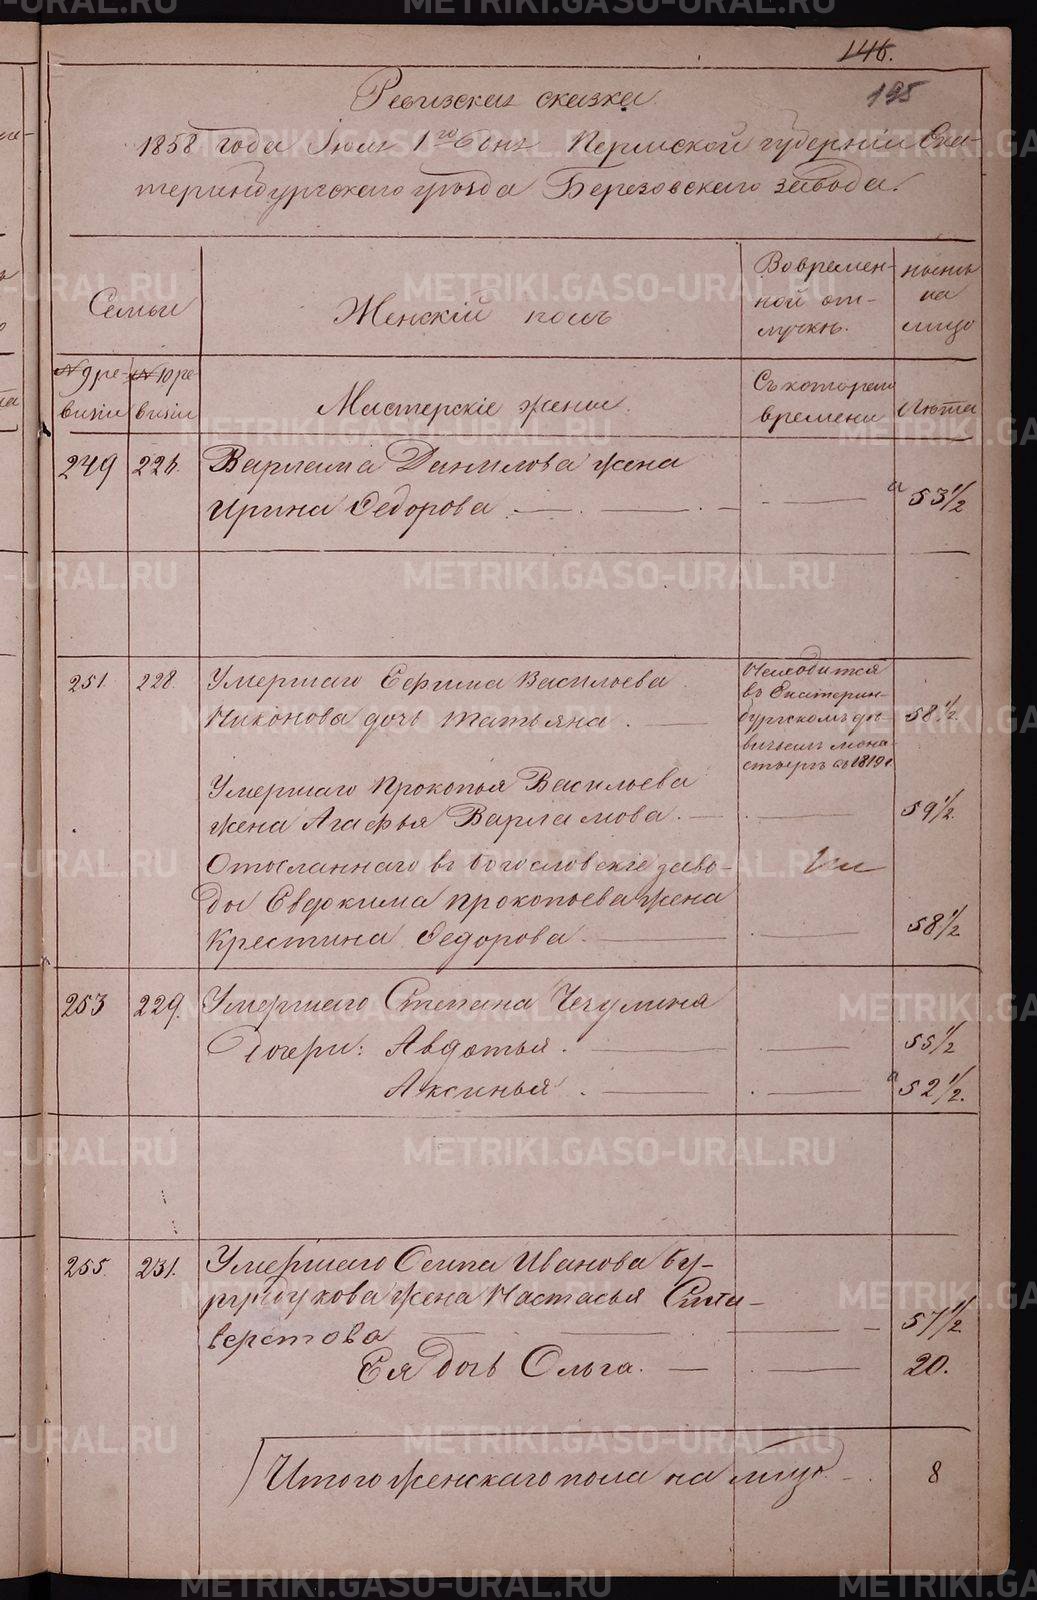 146.
195
Ревизская сказка.
1858 года Іюля 1го дня Пермской губерніи Ека-
теринбургскаго уѣзда Березовскаго завода.
Семьи
Женскій полъ
Во времен-
ной от-
лучкѣ.
нынѣ
на
лицо
№ 9 ре-
визіи
№ 10 ре-
визіи
Мастерскіе жены.
Съ котораго
времени
Лѣта
249
226.
Варлама Данилова жена
Ирина Федорова
53 1/2
251.
228.
Умершаго Ефима Васильева
Никонова дочь Татьяна.
Находится
въ Екатерин-
бургскомъ дѣ-
вичьемъ мона-
стырѣ съ 1819 г.
58 1/2.
Умершаго Прокопья Васильева
жена Агафья Варламова.
59 1/2.
Отосланнаго въ Богословскіе заво-
ды Евдокима Прокопьева жена
Крестина Федорова.
58 1/2
253
229.
Умершаго Степана Чечулина
дочери: Авдотья.
55 1/2
Аксинья.
52 1/2.
255.
231.
Умершаго Осипа Иванова Бу-
рундукова жена Настасья Сили-
верстова
57 1/2
Ея дочь Ольга.
20.
Итого женскаго пола на лицо.
8
METRIKI.GASO-URAL.RU